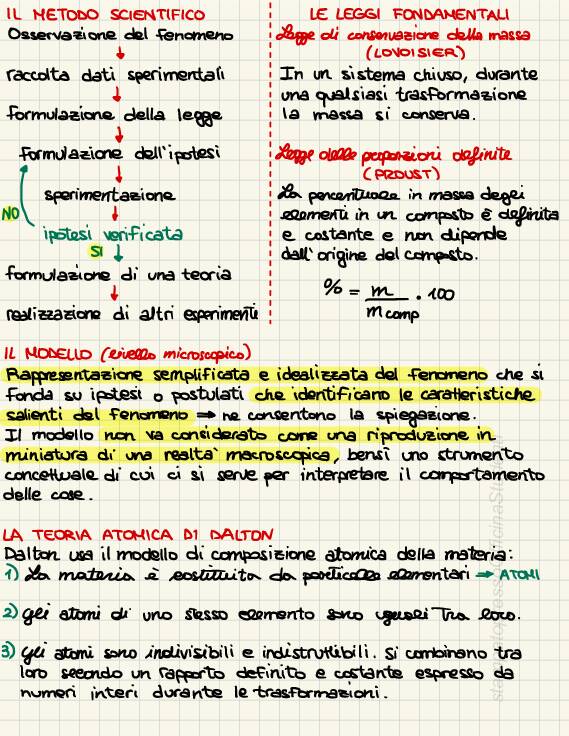 IL METODO SCIENTIFICO
Osservazione del fenomeno
raccolta dati sperimentali
formulazione della legge
formulazione dell'ipotesi
sperimentazione
NO
ipotesi verificata
SI
formulazione di una teoria
realizzazione di altri esperimenti
LE LEGGI FONDAMENTALI
Legge di conservazione della massa
(LOVOISIER)
In un sistema chiuso, durante
una qualsiasi trasformazione
la massa si conserva.
Legge delle proporzioni definite
(PROUST)
La percentuale in massa degli
elementi in un composto è definita
e costante e non dipende
dall'origine del composto.
% = m / m comp · 100
IL MODELLO (livello microscopico)
Rappresentazione semplificata e idealizzata del fenomeno che si
fonda su ipotesi o postulati che identificano le caratteristiche
salienti del fenomeno ⇒ ne consentono la spiegazione.
Il modello non va considerato come una riproduzione in
miniatura di una realtà macroscopica, bensì uno strumento
concettuale di cui ci si serve per interpretare il comportamento
delle cose.
LA TEORIA ATOMICA DI DALTON
Dalton usa il modello di composizione atomica della materia:
1) La materia è costituita da particelle elementari → ATOMI
2) gli atomi di uno stesso elemento sono uguali tra loro.
3) gli atomi sono indivisibili e indistruttibili. Si combinano tra
loro secondo un rapporto definito e costante espresso da
numeri interi durante le trasformazioni.